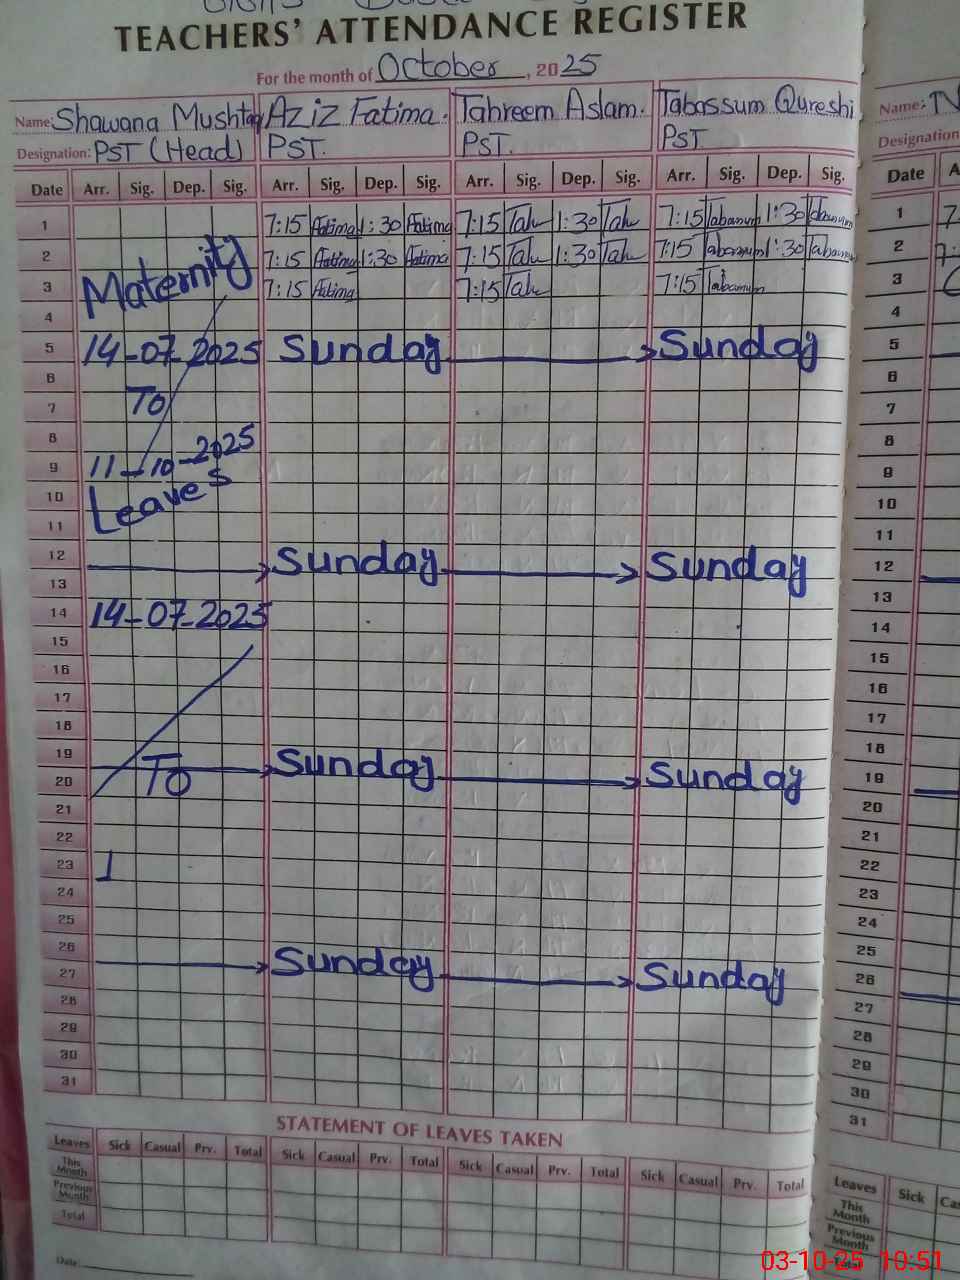 TEACHERS' ATTENDANCE REGISTER
For the month of October, 2025
Name: Shawana Mushtaq Aziz Fatima. Tahreem Aslam. Tabassum Qureshi Name:
Designation: PST (Head) PST. PST. PST Designation
Date Arr. Sig. Dep. Sig. Arr. Sig. Dep. Sig. Arr. Sig. Dep. Sig. Arr. Sig. Dep. Sig. Date
1 7:15 Fatima 1:30 Fatima 7:15 Tah 1:30 Tah 7:15 Tabassum 1:30 1
2 7:15 Fatima 1:30 Fatima 7:15 Tah 1:30 Tah 7:15 Tabassum 1:30 2
Maternity
3 7:15 Fatima 7:15 Tah 7:15 Tabassum 3
4 4
5 14-07-2025 Sunday Sunday 5
6 6
7 To 7
8 8
9 11-10-2025 9
10 Leaves 10
11 11
12 Sunday Sunday 12
13 13
14 14-07-2025 14
15 15
16 16
17 17
18 18
19 Sunday Sunday 19
20 To 20
21 21
22 22
23 1 23
24 24
25 25
26 Sunday Sunday 26
27 27
28 28
29 29
30 30
31 31
STATEMENT OF LEAVES TAKEN
Leaves Sick Casual Prv. Total Sick Casual Prv. Total Sick Casual Prv. Total Sick Casual Prv. Total Leaves Sick
This Month This Month
Previous Month Previous Month
Total Total
Date
03-10-25 10:51